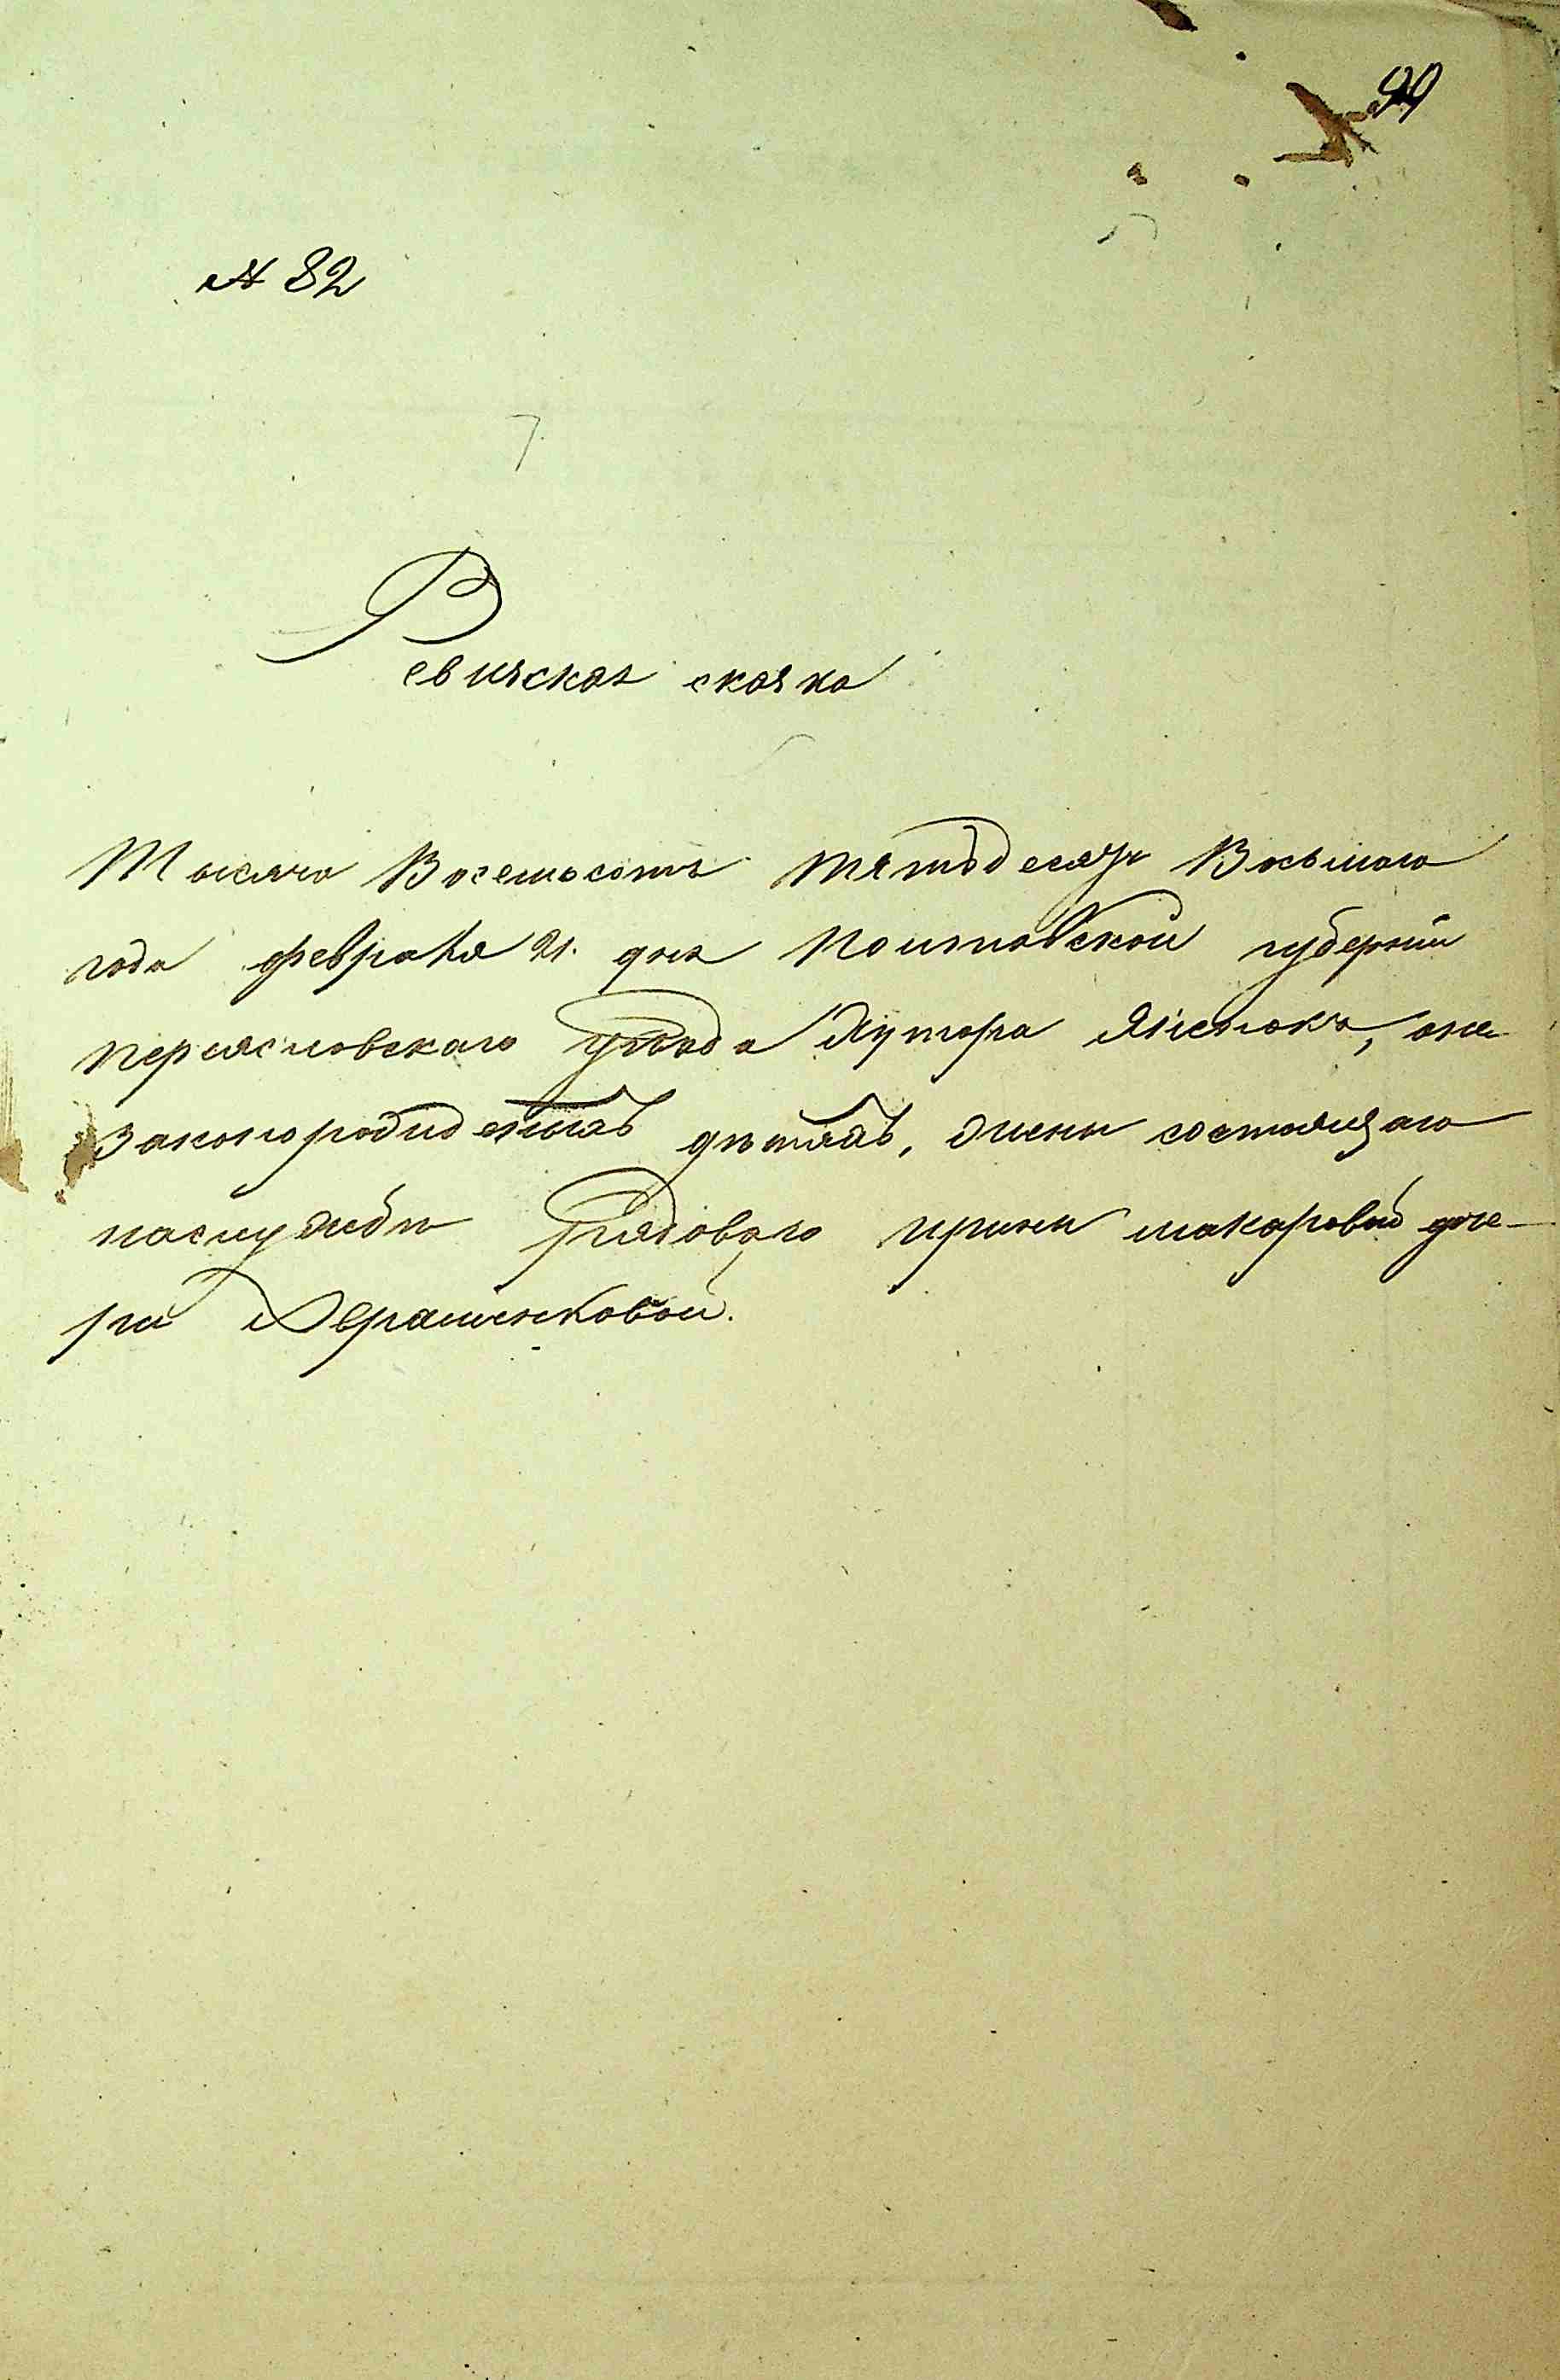 99
№ 82
Ревизская сказка
Тысяча Восемьсотъ пятьдесятъ Восьмаго
года февраля 21. дня Полтавской губерніи
переяславского уѣзда Хутора,оне
законорожденныхъ дѣтяхъ, жены состоящаго
наслужбѣ рядоваго ирины макаровой доче-
ри Авраменковой.